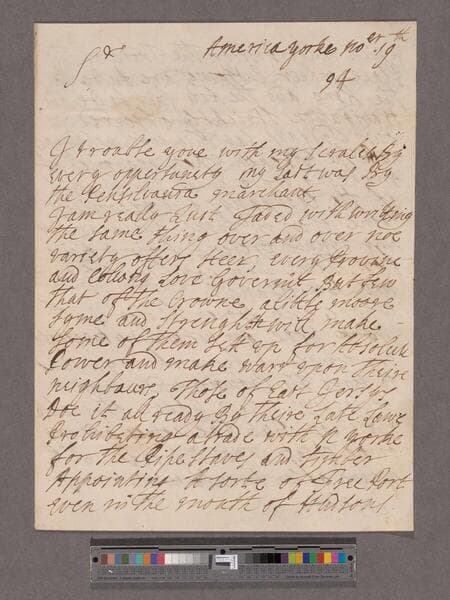 America yorke no:er 19th
94
Sr
I trouble youe with my scralls by
every oppertunety my last was By
the Pensilvania marchant
I am ready Jaded with wrighting
the same thing over and over noe
variety offers heer, every Provance
and Collony love Goverint But few
that of the Crowne, a little moore
tyme and strenght will make
some of them sett up for Absolute
Power and make warr upon theire
neighbours, Those of East Jersy
Doe it all ready By theire late Lawe
Prohibeting a trade with N yorke
for the Pipe staves and timber
Appointing A sorte of Free Port
even in the mouth of Hudsons